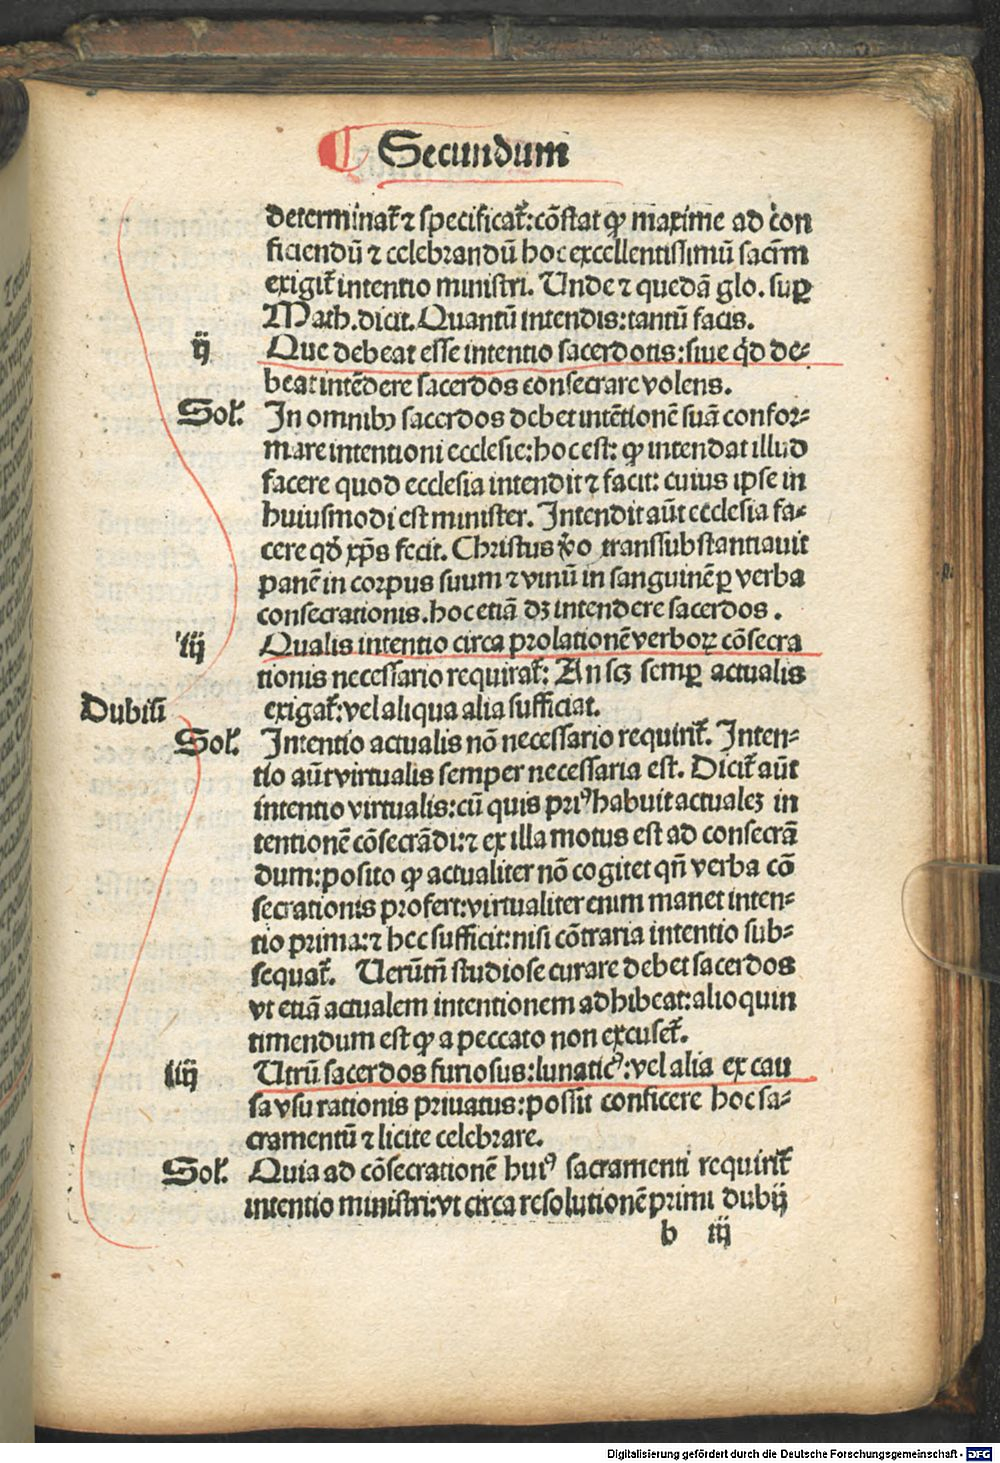 Secundum
determinat᷑ ⁊ specificat᷑: cōstat ꝙ maxime ad con
ficiendū ⁊ celebrandū hoc excellentissimū sacr̄m
exigit᷑ intentio ministri. Unde ⁊ quedā glo. suꝑ
Math. dicit. Quantū intendis: tantū facis.
ij Que debeat esse intentio sacerdotis: siue qd̓ de⸗
beat intēdere sacerdos consecrare volens.
Sol᷑. In omnibꝫ sacerdos debet intētionē suā confor⸗
mare intentioni ecclesie: hoc est: ꝙ intendat illud
facere quod ecclesia intendit ⁊ facit: cuius ipse in
huiusmodi est minister. Intendit aūt ecclesia fa⸗
cere qd̓ xp̄s fecit. Christus v̓o transsubstantiauit
panē in corpus suum ⁊ vinū in sanguinē ꝑ verba
consecrationis. hoc etiā dꝫ intendere sacerdos.
iij Qualis intentio circa prolationē verboꝝ cōsecra
tionis necessario requirat᷑: An scꝫ semꝑ actualis
Dubiū exigat᷑: vel aliqua alia sufficiat.
Sol᷑. Intentio actualis nō necessario requirit᷑. Inten⸗
tio aūt virtualis semper necessaria est. Dicit᷑ aūt
intentio virtualis: cū quis priꝰ habuit actualeꝫ in
tentionē cōsecrādi: ⁊ ex illa motus est ad consecrā
dum: posito ꝙ actualiter nō cogitet qn̄ verba cō
secrationis profert: virtualiter enim manet inten⸗
tio prima: ⁊ hec sufficit: nisi cōtraria intentio sub⸗
sequat᷑. Uerūtn̄ studiose curare debet sacerdos
vt etiā actualem intentionem adhibeat: alioquin
timendum est ꝙ a peccato non excuset᷑.
iiij Utrū sacerdos furiosus: lunaticꝰ: vel alia ex cau
sa vsu rationis priuatus: possit conficere hoc sa⸗
cramentū ⁊ licite celebrare.
Sol᷑. Quia ad cōsecrationē huiꝰ sacramenti requirit᷑
intentio ministri: vt circa resolutionē primi dubij
b iij
Digitalisierung gefördert durch die Deutsche Forschungsgemeinschaft - DFG